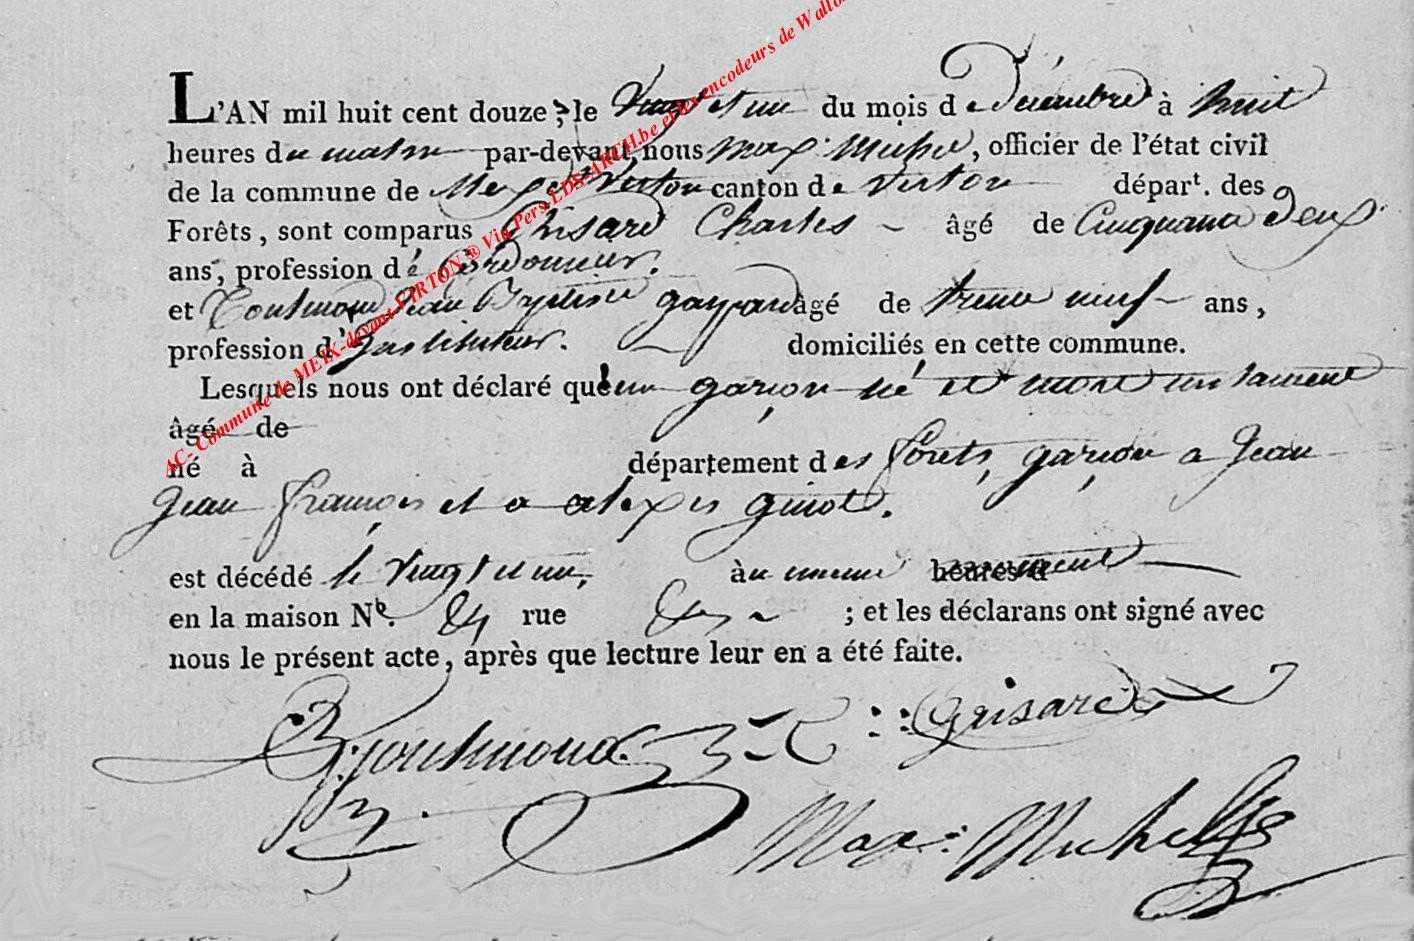 L'AN mil huit cent douze, le vingt et un du mois de Décembre à huit
heures du matin par-devant nous Max Michel, officier de l'état civil
de la commune de Meix dt Virton canton de Virton départ. des
Forêts, sont comparus Grisard Charles âgé de Cinquante deux
ans, profession de Cordonnier.
et Jean Baptiste gaspard âgé de trente neuf ans,
profession d'Instituteur. domiciliés en cette commune.
Lesquels nous ont déclaré que un garçon né et mort
âgé de
né à département des forêts, garçon a Jean
Jean françois et a alexis guiot.
est décédé le vingt et un, au heures d
en la maison N°. rue ; et les déclarans ont signé avec
nous le présent acte, après que lecture leur en a été faite.
C :: Grisard
Max: Michel
AC- Commune de MEIX-devant-VIRTON ® Via Pers-LDS-ARCH.be et les encodeurs de Wallo